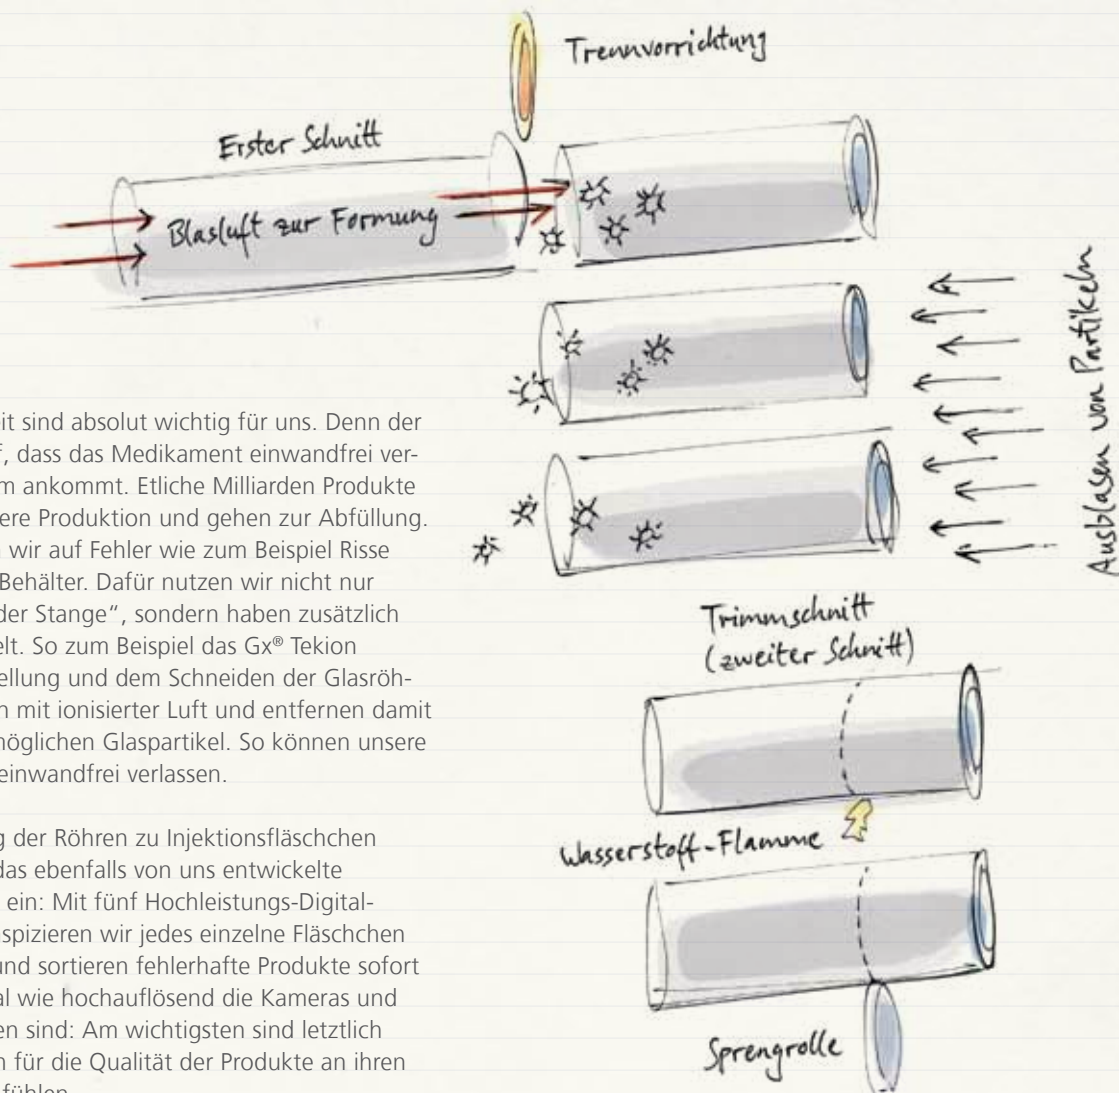 Trennvorrichtung
Erster Schnitt
Blasluft zur Formung
Ausblasen von Partikeln
eit sind absolut wichtig für uns. Denn der
f, dass das Medikament einwandfrei ver-
m ankommt. Etliche Milliarden Produkte
ere Produktion und gehen zur Abfüllung.
n wir auf Fehler wie zum Beispiel Risse
Behälter. Dafür nutzen wir nicht nur
der Stange“, sondern haben zusätzlich
elt. So zum Beispiel das Gx® Tekion
ellung und dem Schneiden der Glasröh-
n mit ionisierter Luft und entfernen damit
möglichen Glaspartikel. So können unsere
einwandfrei verlassen.
g der Röhren zu Injektionsfläschchen
das ebenfalls von uns entwickelte
ein: Mit fünf Hochleistungs-Digital-
nspizieren wir jedes einzelne Fläschchen
und sortieren fehlerhafte Produkte sofort
al wie hochauflösend die Kameras und
en sind: Am wichtigsten sind letztlich
n für die Qualität der Produkte an ihren
fühlen.
Trimmschnitt
(zweiter Schnitt)
Wasserstoff-Flamme
Sprengrolle